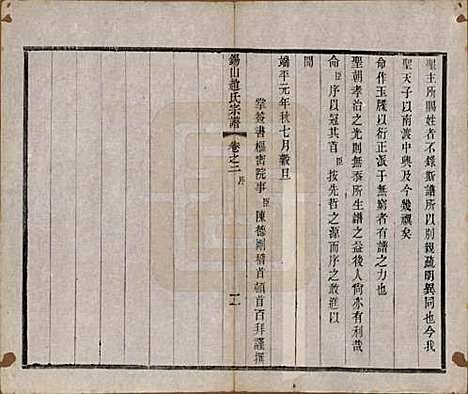 聖主所賜姓者不錄斯譜所以別親疏明異同也今我
聖天子以南渡中興及今幾禩矣
命作玉牒以衍正派于無窮者有譜之力也
聖朝孝治之光則無忝所生譜之益後人尙亦有利哉
命臣序以冠其首臣按先哲之源而序之敢進以
聞
端平元年秋七月穀旦
掌簽書樞密院事臣陳德剛稽首頓首百拜謹撰
錫山趙氏宗譜
卷之二
序
十一